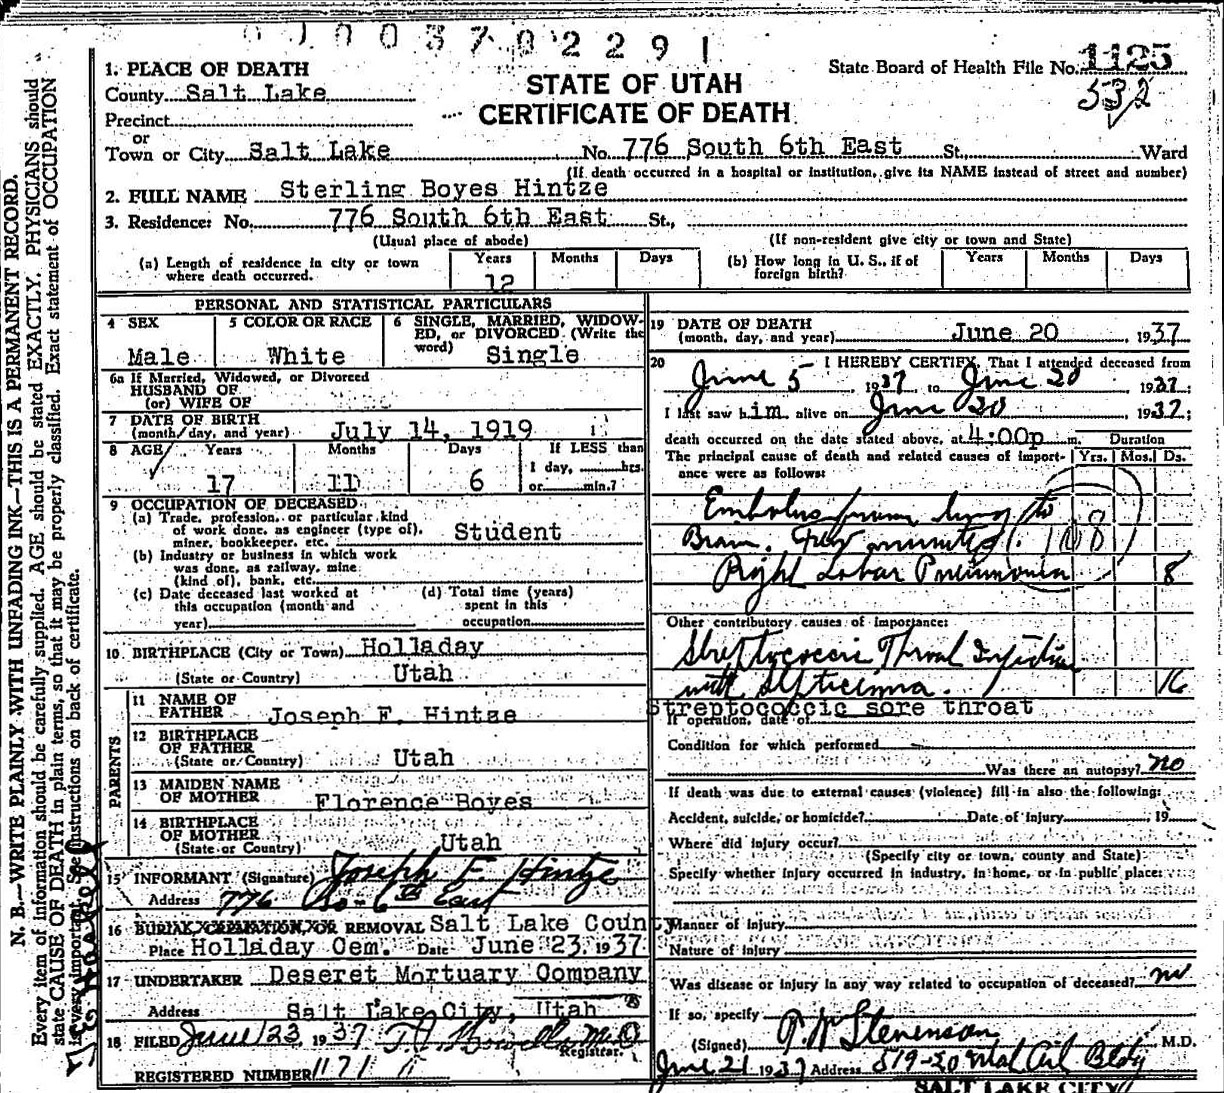 0 0 0 3 7 0 2 2 9 1
1. PLACE OF DEATH
County Salt Lake
Precinct
or
Town or City Salt Lake No. 776 South 6th East St. Ward
(If death occurred in a hospital or institution, give its NAME instead of street and number)
STATE OF UTAH
CERTIFICATE OF DEATH
State Board of Health File No. 1125
532
2. FULL NAME Sterling Boyes Hintze
3. Residence: No. 776 South 6th East St.,
(Usual place of abode) (If non-resident give city or town and State)
(a) Length of residence in city or town where death occurred. Years 12 Months Days
(b) How long in U. S., if of foreign birth? Years Months Days
PERSONAL AND STATISTICAL PARTICULARS
4 SEX Male
5 COLOR OR RACE White
6 SINGLE, MARRIED, WIDOWED, or DIVORCED. (Write the word) Single
6a If Married, Widowed, or Divorced
HUSBAND OF
(or) WIFE OF
7 DATE OF BIRTH
(month, day, and year) July 14, 1919
8 AGE Years 17 Months 11 Days 6 If LESS than 1 day, hrs. or min.?
9 OCCUPATION OF DECEASED
(a) Trade, profession, or particular kind
of work done, as engineer (type of),
miner, bookkeeper, etc. Student
(b) Industry or business in which work
was done, as railway, mine
(kind of), bank, etc.
(c) Date deceased last worked at
this occupation (month and
year)
(d) Total time (years)
spent in this
occupation
10 BIRTHPLACE (City or Town) Holladay
(State or Country) Utah
PARENTS
11 NAME OF
FATHER Joseph F. Hintze
12 BIRTHPLACE
OF FATHER
(State or Country) Utah
13 MAIDEN NAME
OF MOTHER Florence Boyes
14 BIRTHPLACE
OF MOTHER
(State or Country) Utah
15 INFORMANT (Signature) Joseph F Hintze
Address 776 So- 6th East
16 BURIAL, CREMATION, OR REMOVAL Salt Lake County
Place Holladay Cem. Date June 23, 1937
17 UNDERTAKER Deseret Mortuary Company
Address Salt Lake City, Utah
18 FILED June 23, 1937 M.D.
Registrar.
REGISTERED NUMBER 1171
19 DATE OF DEATH
(month, day, and year) June 20, 1937
20 I HEREBY CERTIFY, That I attended deceased from
June 5, 1937 to June 20 1937;
I last saw him alive on June 20 1937;
death occurred on the date stated above, at 4:00p m. Duration
The principal cause of death and related causes of importance were as follows: Yrs. Mos. Ds.
Embolus from lung to
Brain. Few minutes. 108
Right Lobar Pneumonia 8
Other contributory causes of importance:
Streptococcic Throat Infection
with Septicemia. 16
Streptococcic sore throat
If operation, date of
Condition for which performed
Was there an autopsy? no
If death was due to external causes (violence) fill in also the following:
Accident, suicide, or homicide? Date of injury 19
Where did injury occur?
(Specify city or town, county and State)
Specify whether injury occurred in industry, in home, or in public place:
Manner of injury
Nature of injury
Was disease or injury in any way related to occupation of deceased? no
If so, specify
(Signed) P. W Stevenson M.D.
June 21 1937 Address 519-20 Bldg
SALT LAKE CITY
N. B.—WRITE PLAINLY WITH UNFADING INK—THIS IS A PERMANENT RECORD.
Every item of information should be carefully supplied. AGE should be stated EXACTLY. PHYSICIANS should
state CAUSE OF DEATH in plain terms, so that it may be properly classified. Exact statement of OCCUPATION
is very important. See instructions on back of certificate.